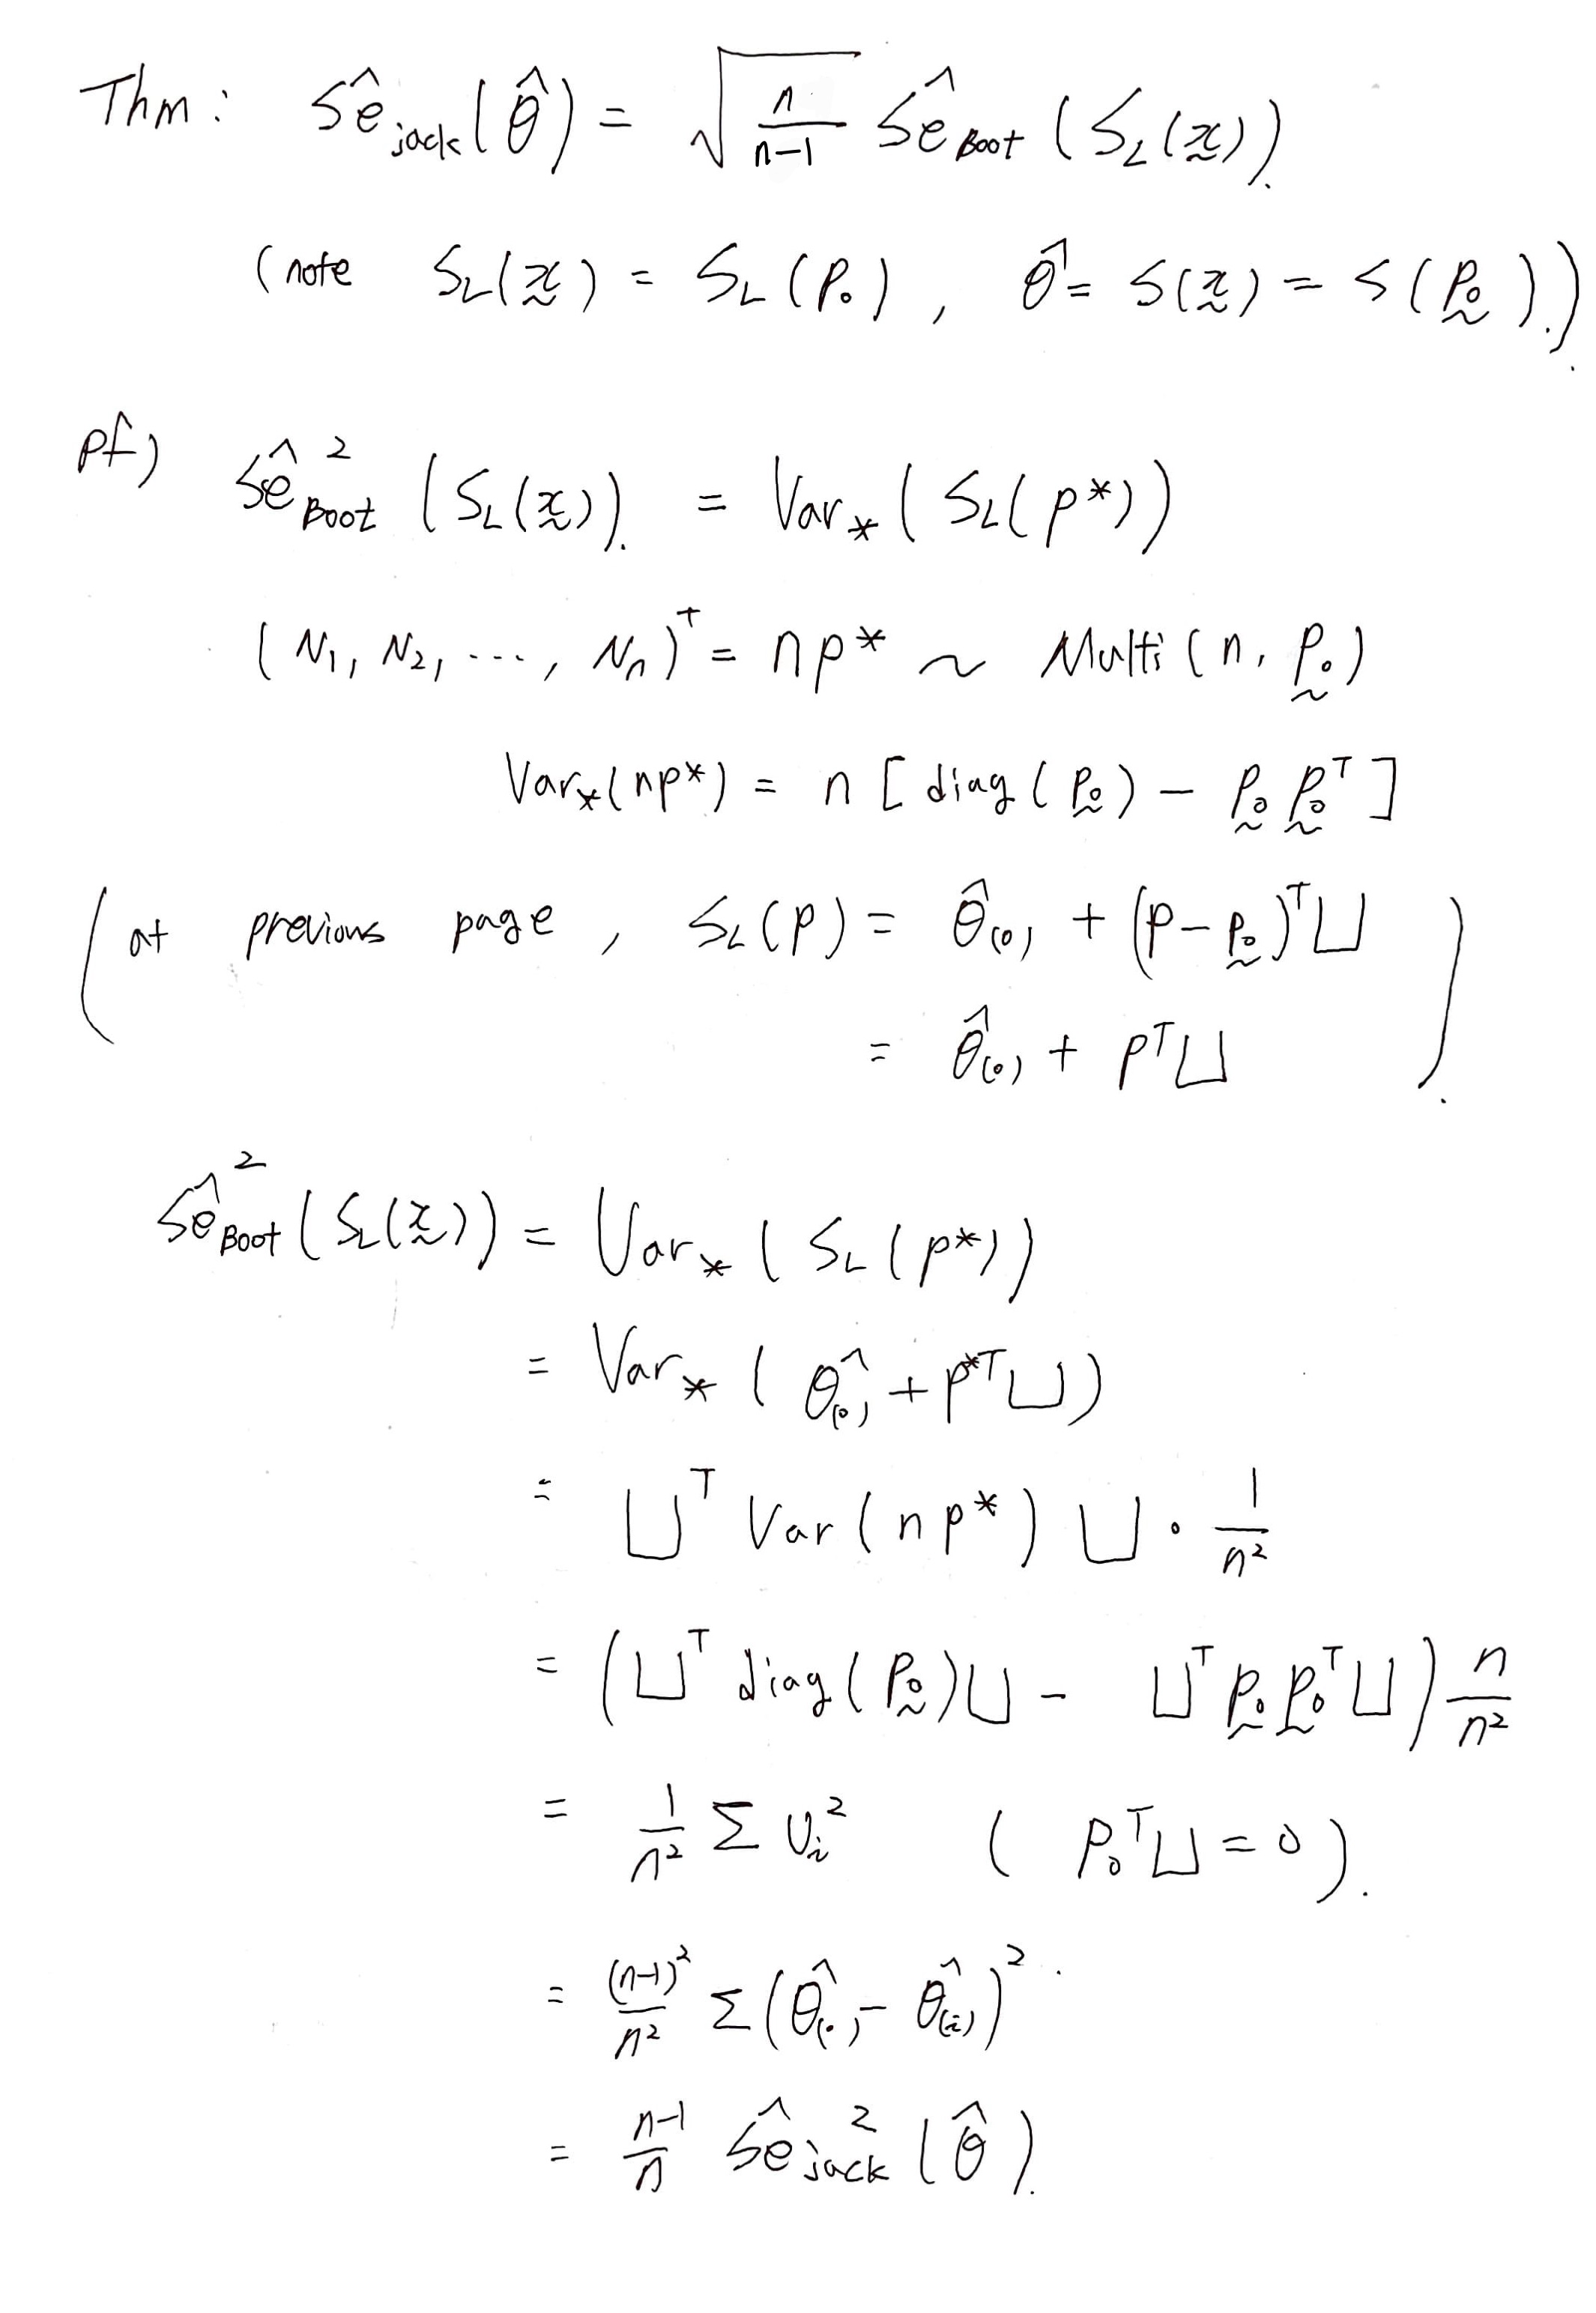 Thm: ŝe_jack(θ̂) = √(n/(n-1)) ŝe_Boot(S_L(x̰)).
(note S_L(x̰) = S_L(P₀), θ̂ = S(x̰) = S(P̰₀).).
pf) ŝe²_Boot(S_L(x̰)). = Var_*(S_L(p*))
(N₁, N₂, ..., Nₙ)ᵀ = np* ~ Multi(n, P̰₀)
Var_*(np*) = n[diag(P̰₀) - P̰₀P̰₀ᵀ]
(at previous page, S_L(P) = θ̂₍₀₎ + (P-P̰₀)ᵀU
= θ̂₍₀₎ + PᵀU).
ŝe²_Boot(S_L(x̰)) = Var_*(S_L(p*))
= Var_*(θ̂₍₀₎ + P*ᵀU)
= Uᵀ Var(np*) U · 1/n²
= (Uᵀ diag(P̰₀)U - UᵀP̰₀P̰₀ᵀU) n/n²
= 1/n² Σ Uᵢ² (P₀ᵀU = 0).
= (n-1)²/n² Σ(θ̂₍.₎ - θ̂₍ᵢ₎)².
= (n-1)/n ŝe²_jack(θ̂).